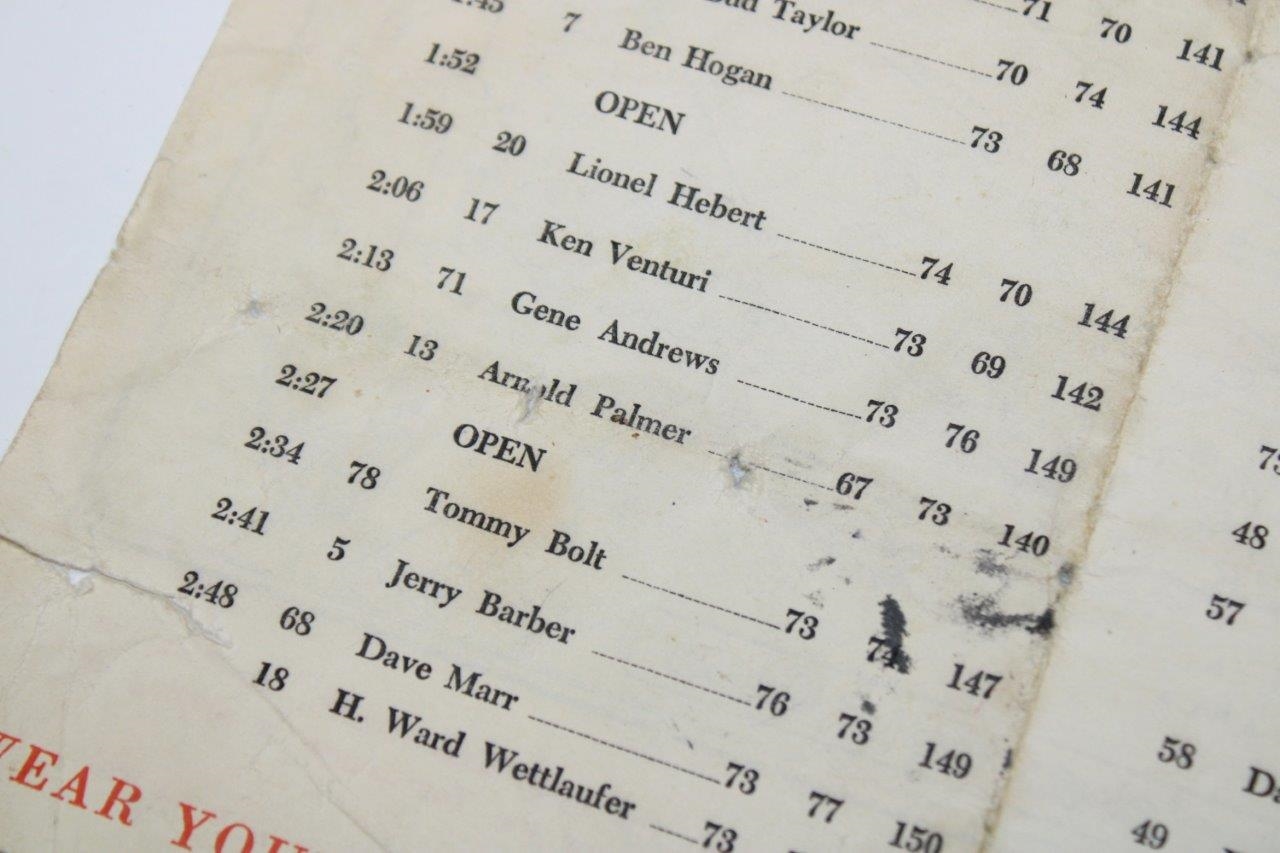 71 70 141
Taylor 70 74 144
1:45 7 Ben Hogan 73 68 141
1:52 OPEN
1:59 20 Lionel Hebert 74 70 144
2:06 17 Ken Venturi 73 69 142
2:13 71 Gene Andrews 73 76 149
2:20 13 Arnold Palmer 67 73 140
2:27 OPEN
2:34 78 Tommy Bolt 73 74 147
2:41 5 Jerry Barber 76 73 149
2:48 68 Dave Marr 73 77 150
18 H. Ward Wettlaufer 73
WEAR YOU
48
57
58
49